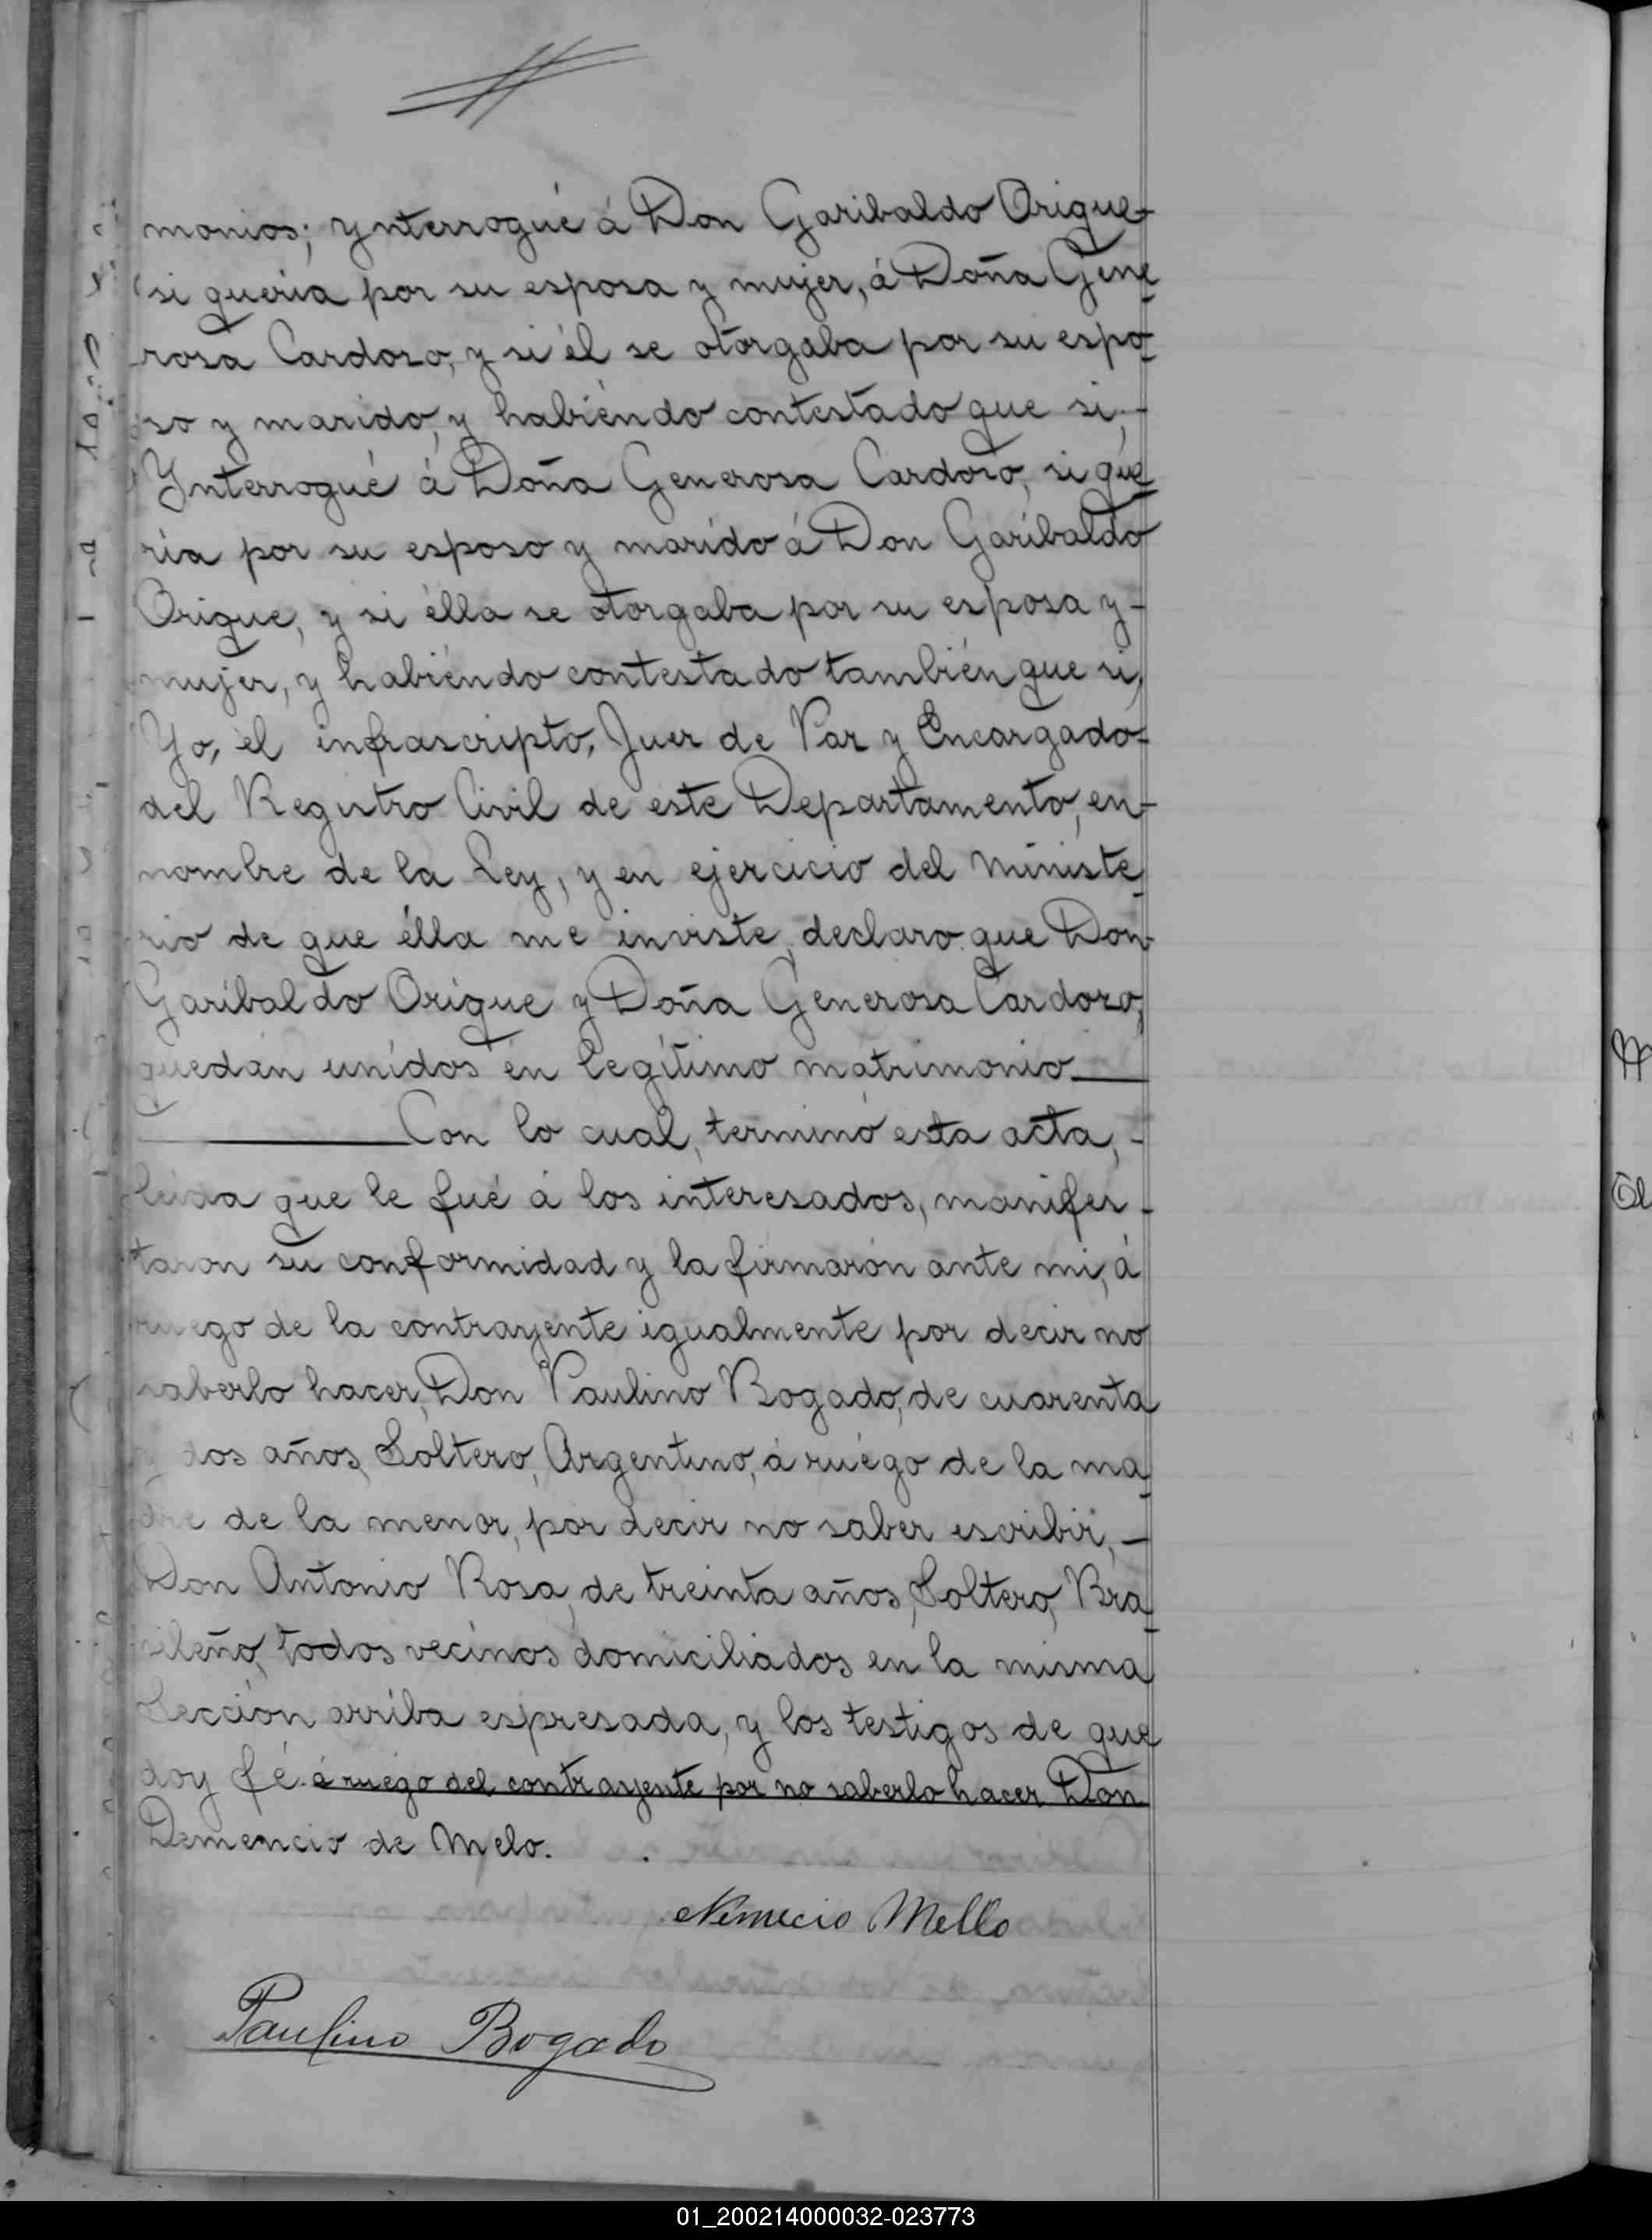 monios; ynterrogué á Don Garibaldo Orique-
si queria por su esposa y mujer, á Doña Gene
rosa Cardozo, y si él se otorgaba por su espo
so y marido, y habiéndo contestado que si,-
Ynterrogué á Doña Generosa Cardozo, si que
ria por su esposo y marido á Don Garibaldo
Orique, y si élla se otorgaba por su esposa y-
mujer, y habiéndo contestado también que si,
Yo, el infrascripto, Juez de Paz y Encargado-
del Registro Civil de este Departamento, en-
nombre de la Ley, y en ejercicio del Ministe
rio de que élla me inviste, declaro que Don
Garibaldo Orique y Doña Generosa Cardozo,
quedán unidos en legítimo matrimonio
Con lo cual, terminó esta acta,-
leida que le fué á los interesados, manifes-
taron su conformidad y la firmarón ante mi, á
ruego de la contrayente igualmente por decir no
saberlo hacer, Don Paulino Bogado, de cuarenta
y dos años, Soltero, Argentino, á ruégo de la ma
dre de la menor, por decir no saber escribir,-
Don Antonio Rosa, de treinta años, Soltero, Bra
sileño, todos vecinos domiciliados en la misma
Sección arriba espresada, y los testigos de que
doy fé. á ruégo del contrayente por no saberlo hacer Don
Demencio de Melo.
Nemecio Mello
Paulino Bogado
01_200214000032-023773